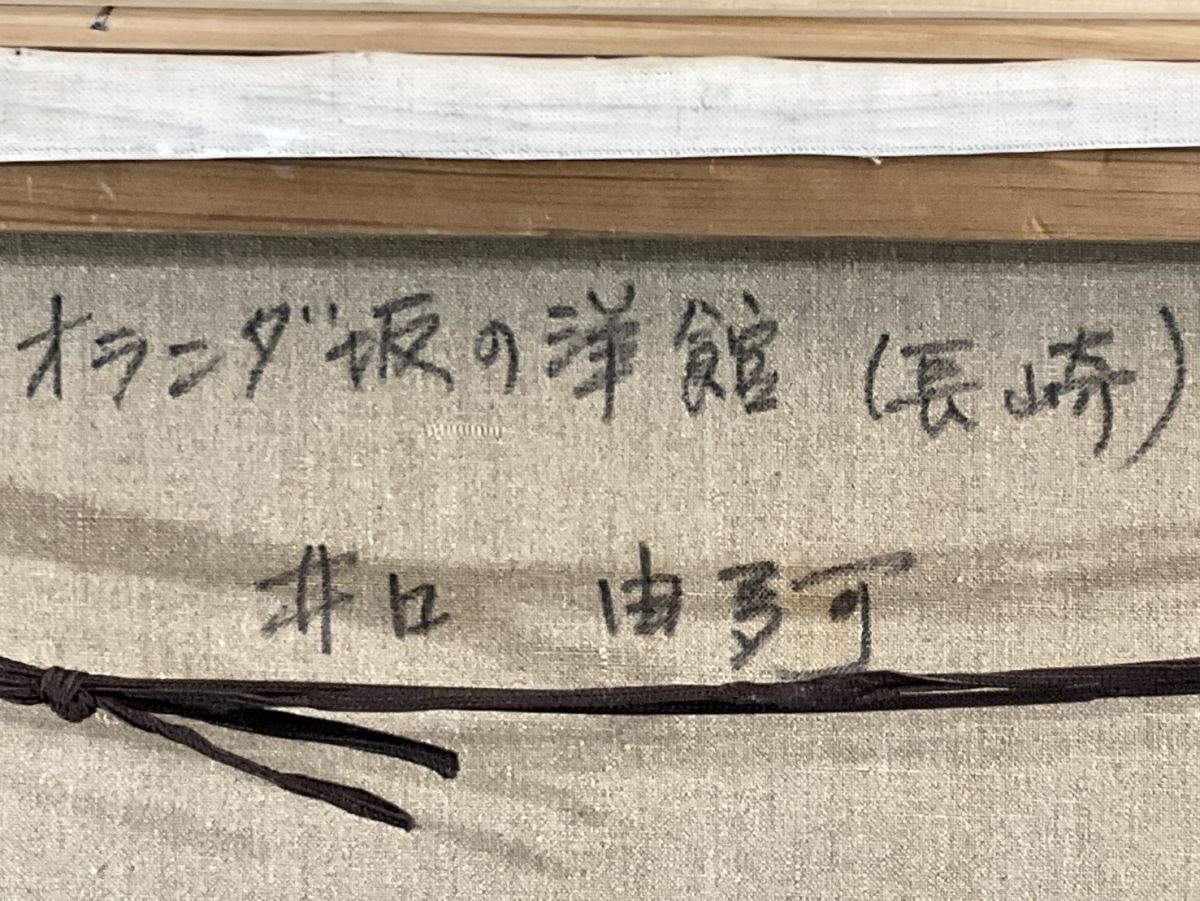 オランダ坂の洋館（長崎）
井口 由多可